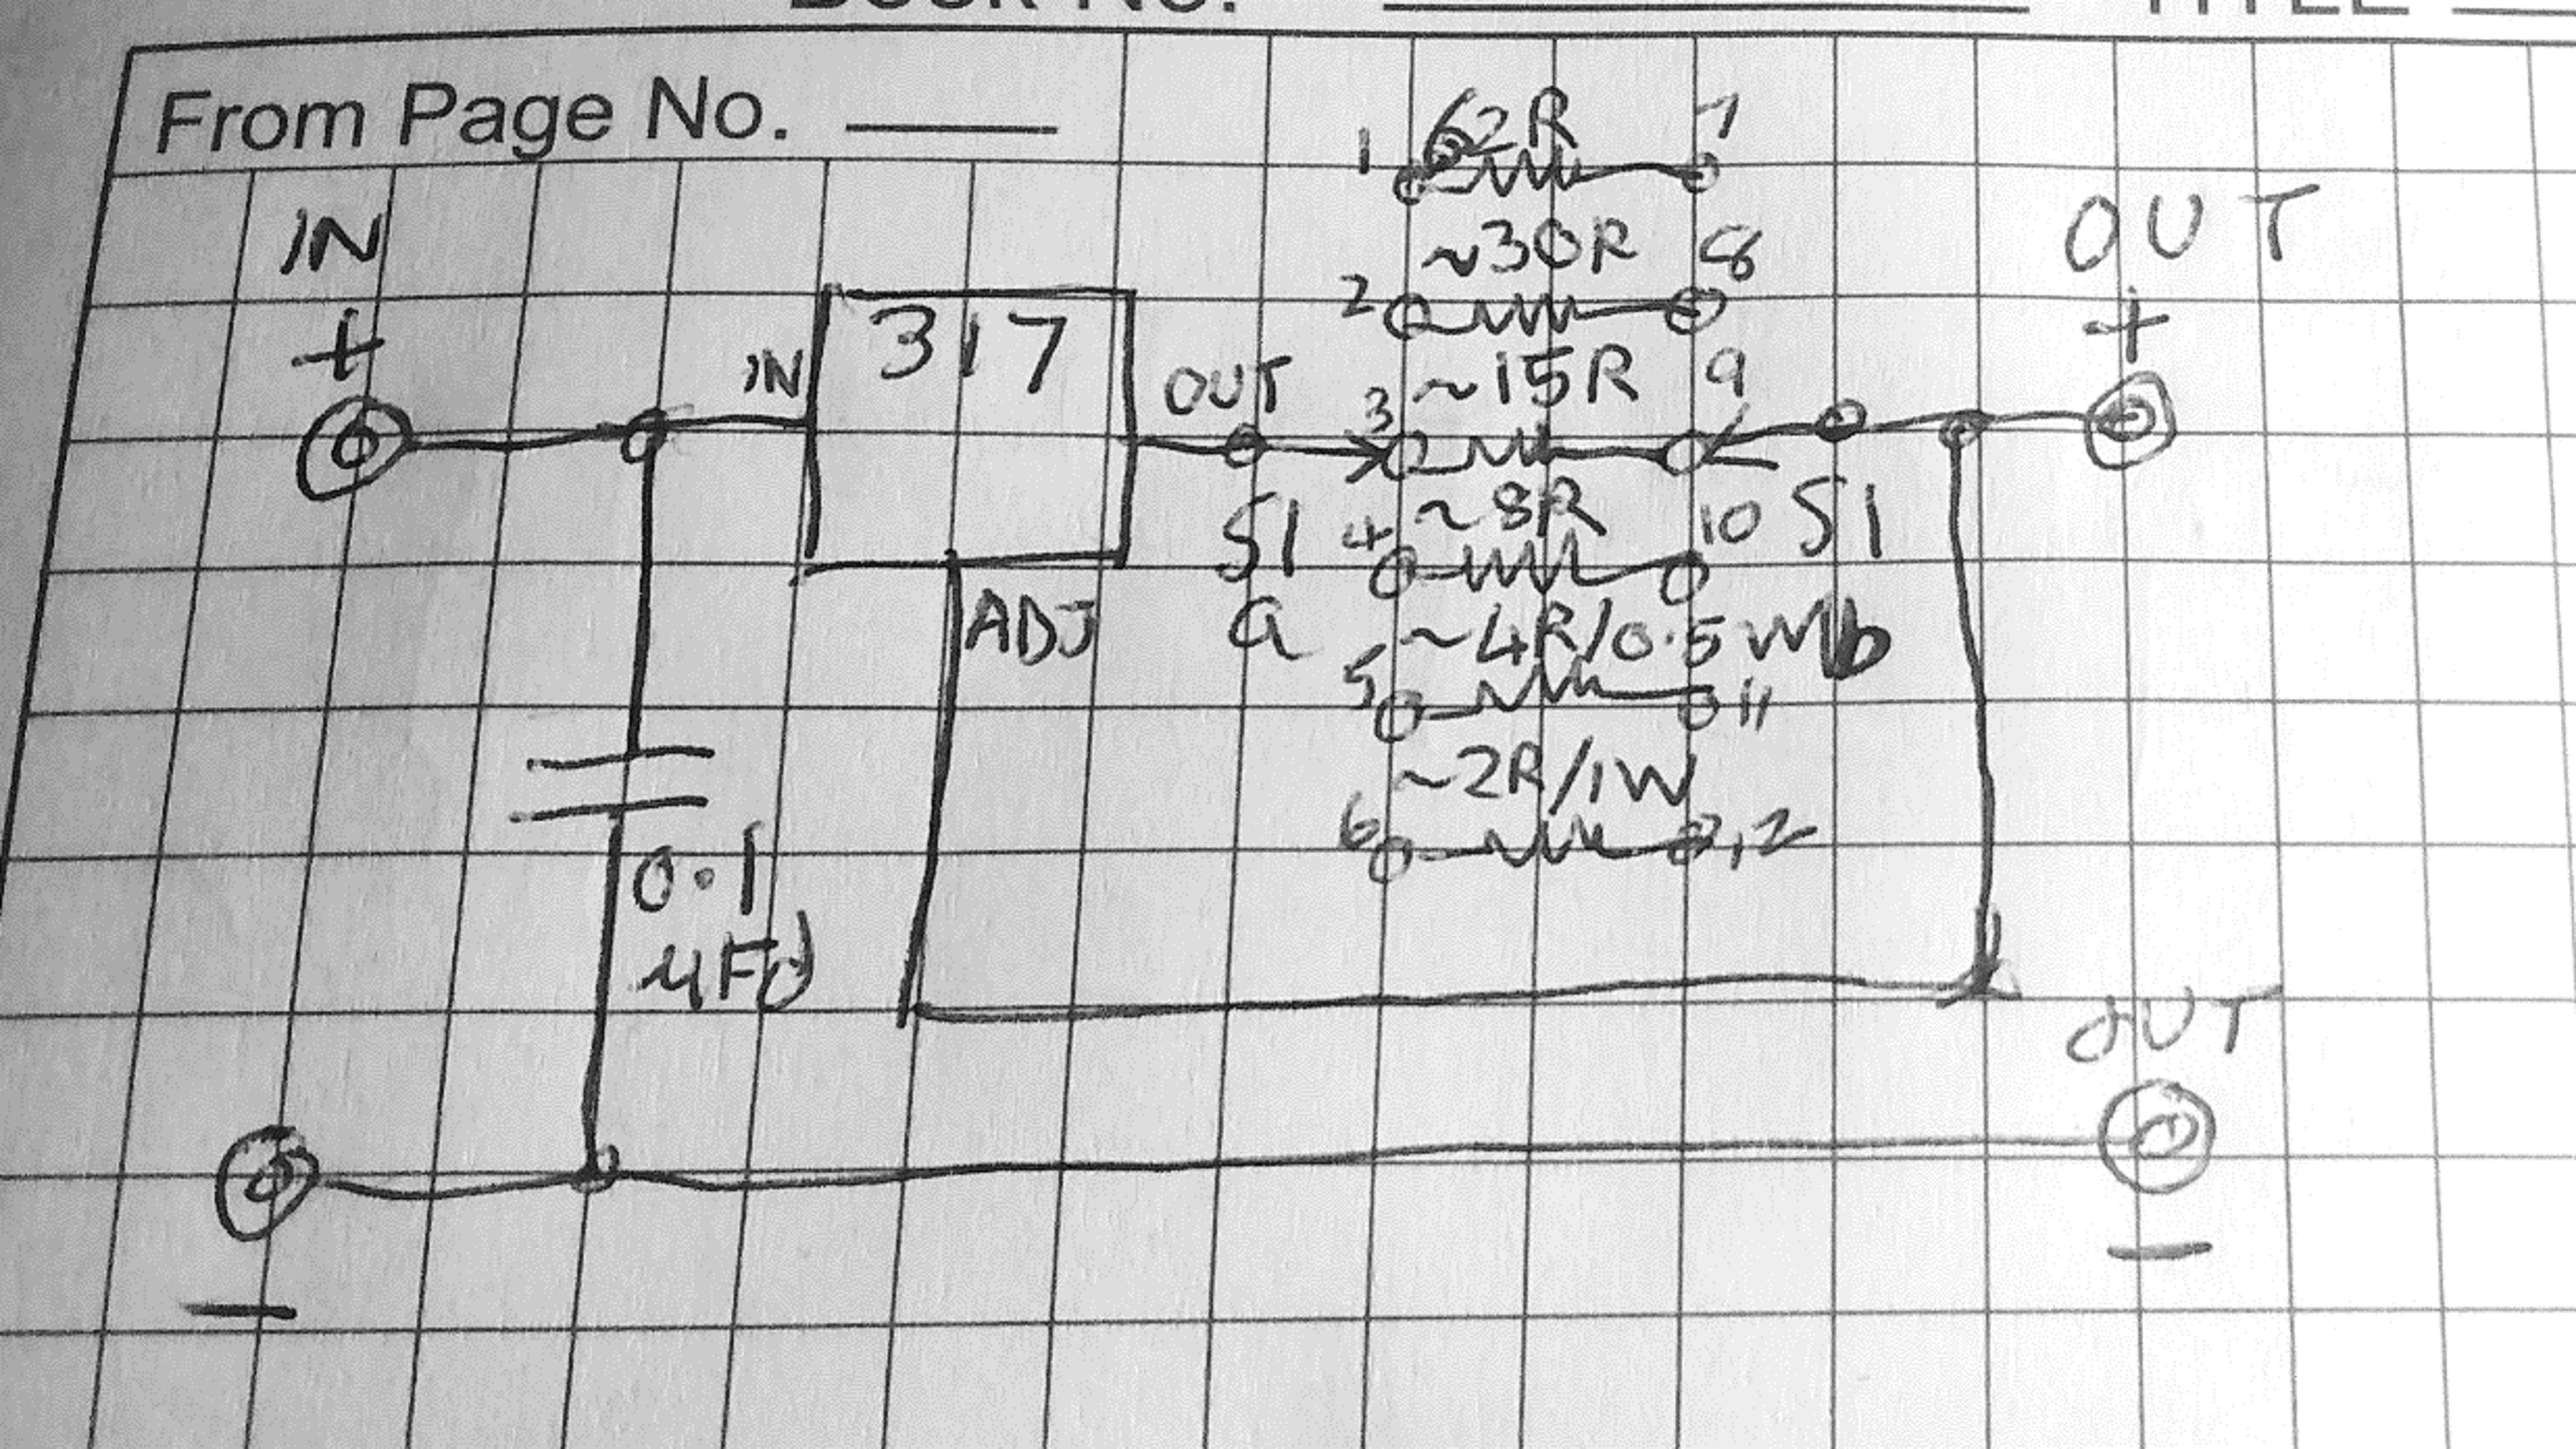 From Page No.
62R
1
7
IN
~30R
8
OUT
2
+
+
317
~15R
9
IN
OUT
3
~8R
S1
4
10
S1
a
ADJ
~4R/0.5W
b
5
11
~2R/1W
6
12
0.1
µFd
OUT
—
—